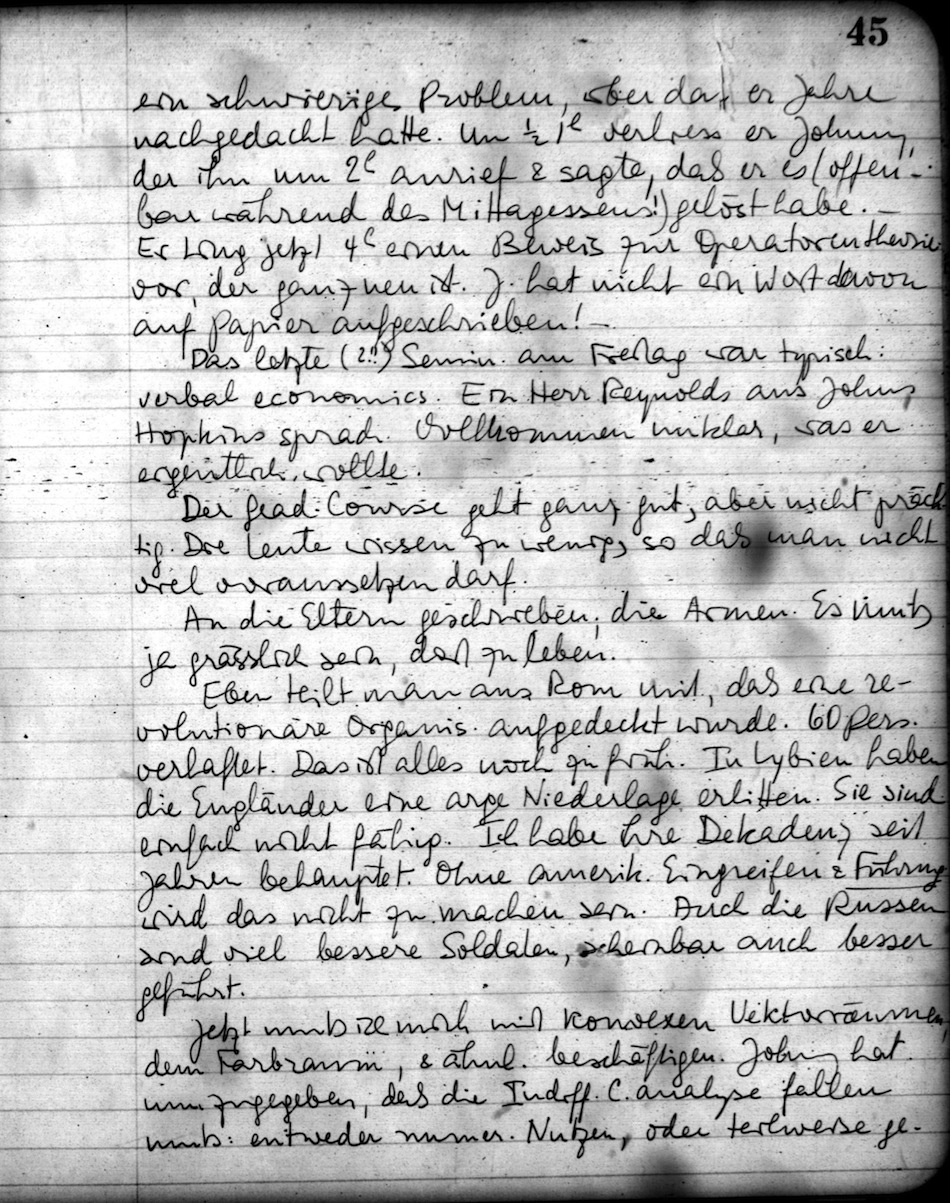 45
ein schwieriges Problem, über das er Jahre
nachgedacht hatte. Um ½ 1ʰ verliess er Johnny,
der ihn um 2ʰ anrief & sagte, daß er es (offen-
bar während des Mittagessens!) gelöst habe. –
Er trug jetzt 4ʰ einen Beweis zur Operatorentheorie
vor, der ganz neu ist. J. hat nicht ein Wort davon
auf Papier aufgeschrieben! –
Das letzte (2!!) Semin. am Freitag war typisch:
verbal economics. Ein Herr Reynolds aus Johns
Hopkins sprach. Vollkommen unklar, was er
eigentlich wollte.
Der Grad. Course geht ganz gut, aber nicht präch
tig. Die Leute wissen zu wenig, so daß man nicht
viel voraussetzen darf.
An die Eltern geschrieben, die Armen. Es muß
ja grässlich sein, dort zu leben.
Eben teilt man aus Rom mit, daß eine re-
volutionäre Organis. aufgedeckt wurde. 60 Pers.
verhaftet. Das ist alles noch zu früh. In Lybien haben
die Engländer eine arge Niederlage erlitten. Sie sind
einfach nicht fähig. Ich habe ihre Dekadenz seit
Jahren behauptet. Ohne amerik. Eingreifen & Führung
wird das nicht zu machen sein. Auch die Russen
sind viel bessere Soldaten, scheinbar auch besser
geführt.
Jetzt muß ich mich mit konvexen Vektorräumen,
dem Farbraum, & ähnl. beschäftigen. Johnny hat
nun zugegeben, daß die Indiff. C. analyse fallen
muß: entweder numer. Nutzen, oder teilweise ge-